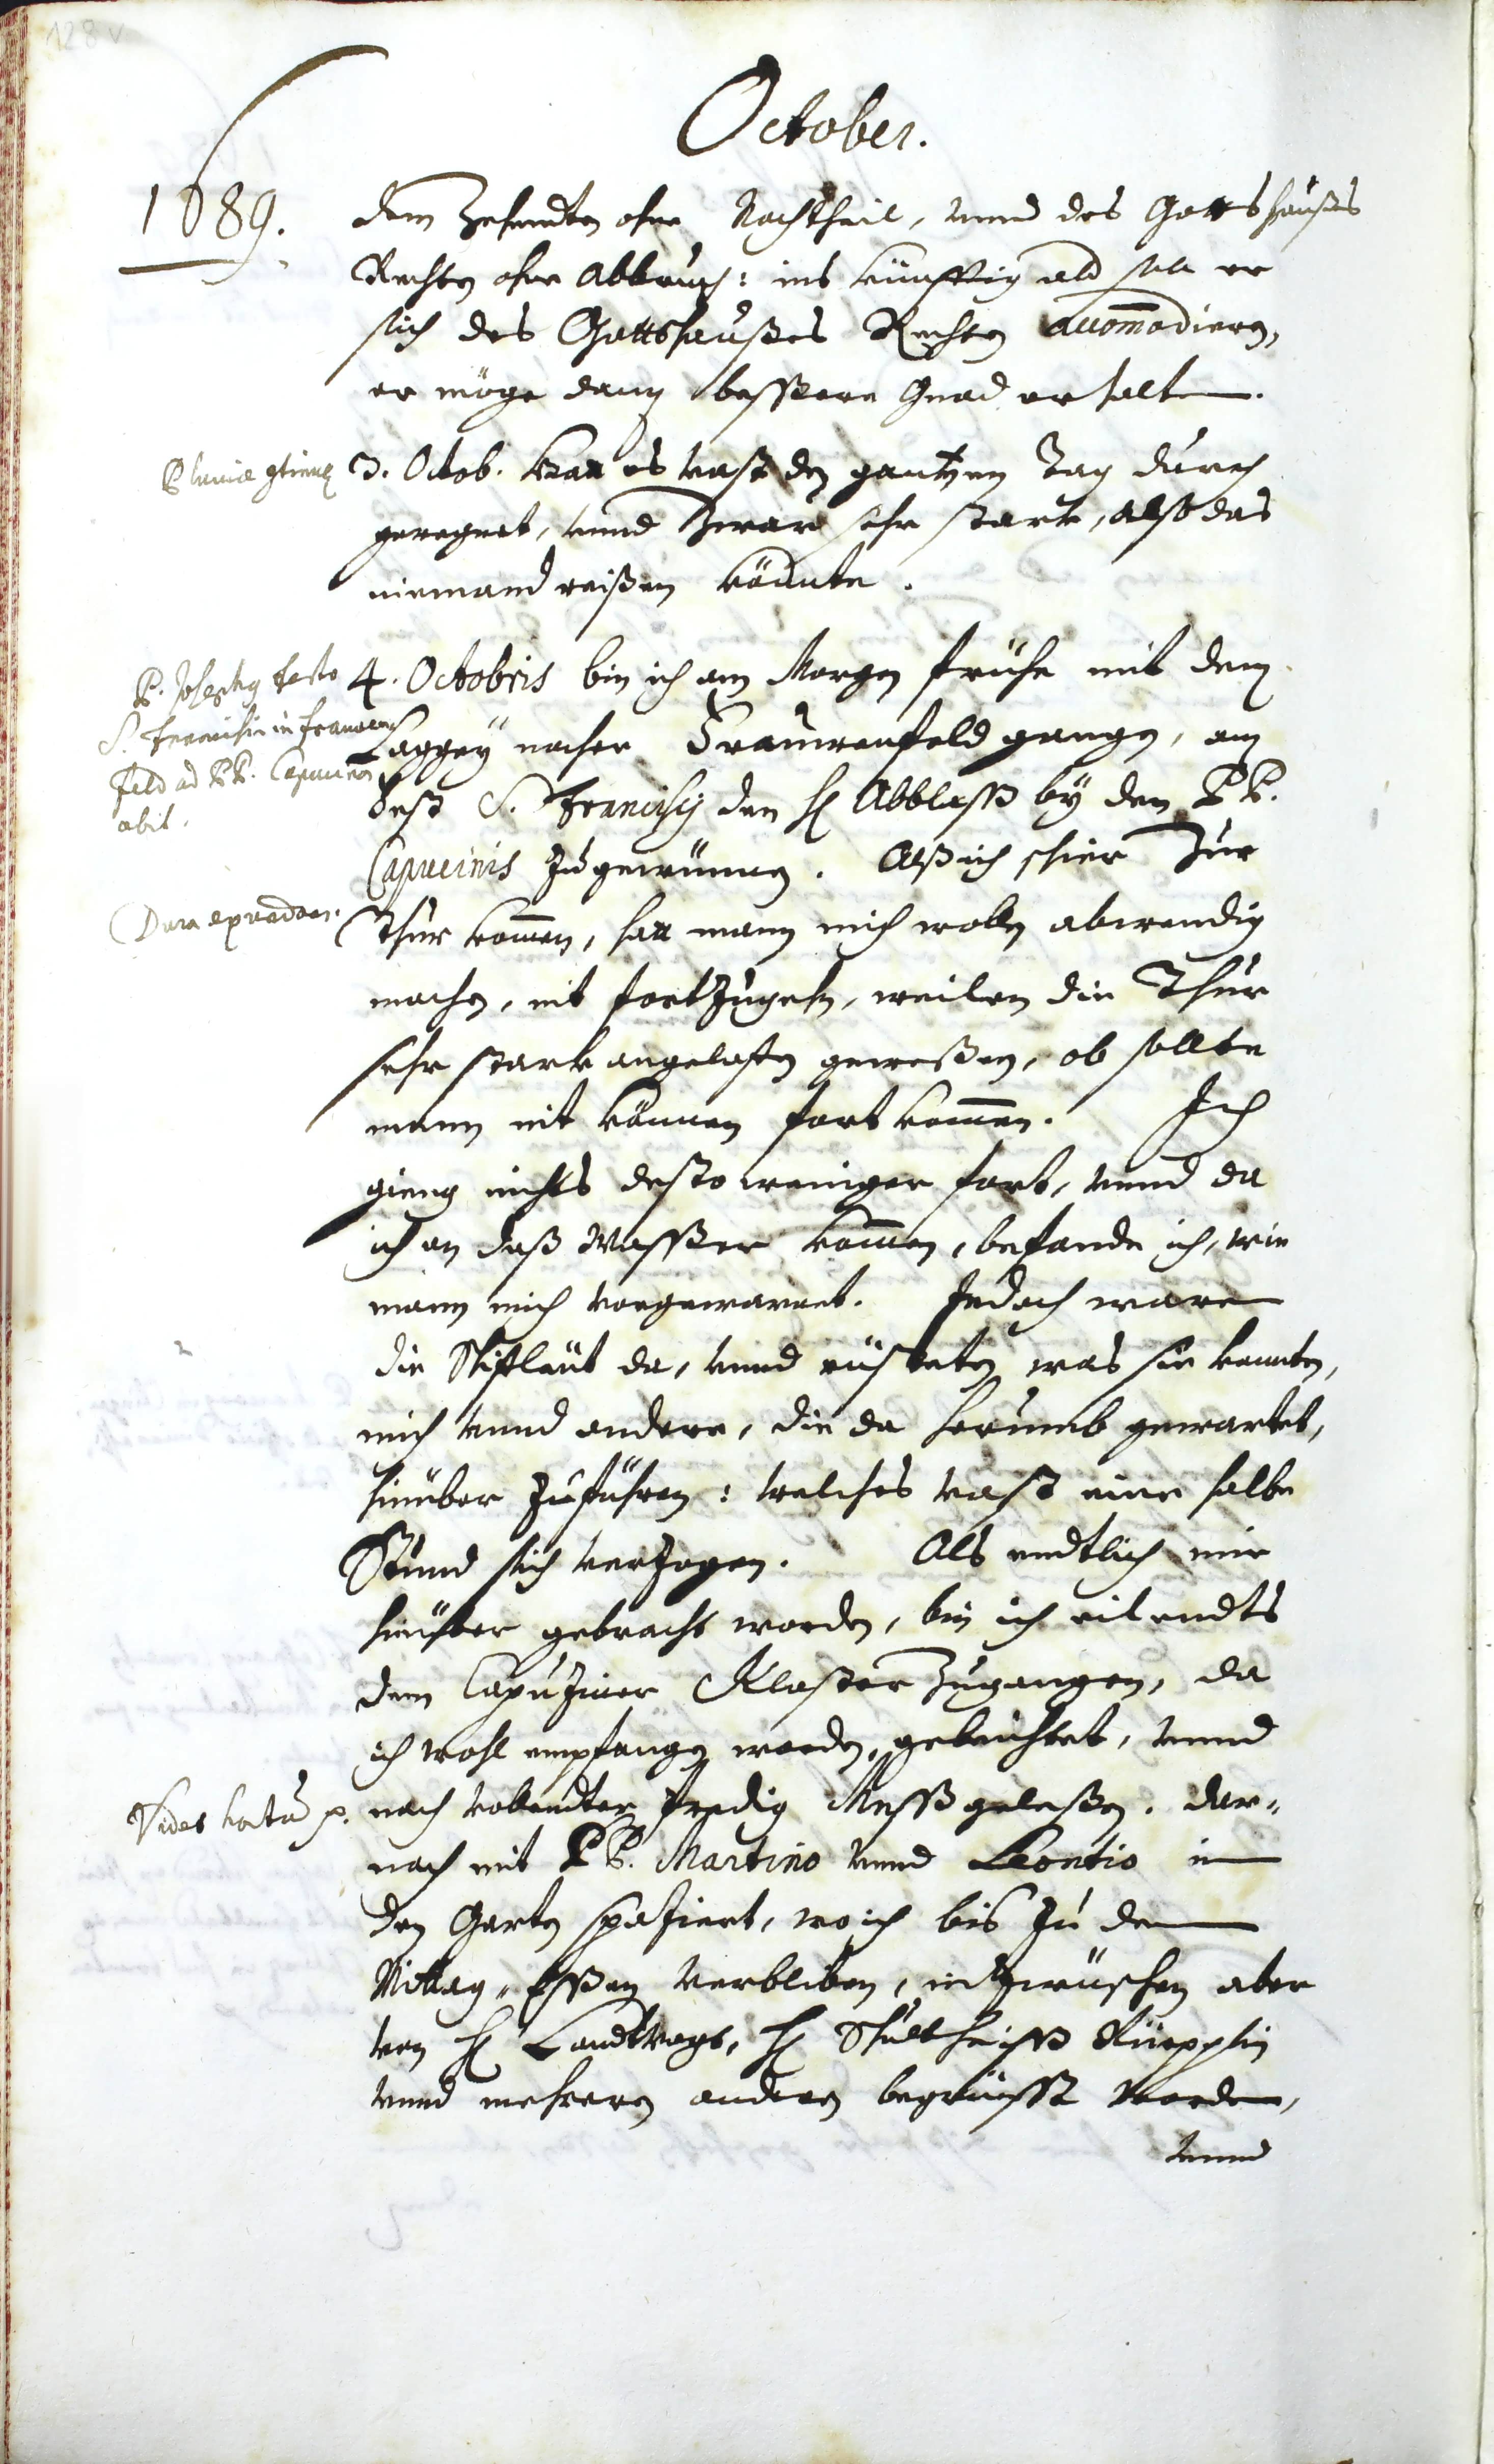 128 v
October.
1689.
dem Zehendten ohne Nachtheil, vnnd des Gottshaußes
Rechten ohne Abbruch: ins künfftig ald soll er
sich des Gottshaußes Rechten accom̄odieren,
er möge dann bessere Gnad erhalten.
Pluviæ
3. Octob. hatt es vast den gantzen Tag durch
geregnet, vnnd Zwar sehr starck, also das
niemand reißen könnte.
P. Josephus festo
S. Francisci in Frauwen
feld ad PP. Capucinos
abit.
4. Octobris bin ich am Morgen frühe mit dem
Laggey nacher Frauwenfeld gangen, am
Fest S. Francisci den H. Abblass bÿ den PP.
Capucinis Zu gewünnen. Alß ich schier Zur
Thur kom̄en, hatt mann mich wollen abwendig
machen, nit fortZugehn, weilen die Thur
sehr starck angeloffen geweßen, ob sollte
mann nit können fort kom̄en. Ich
gieng nichts desto weniger fort, vnnd da
ich an daß Wasser kom̄en, befande ich, wie
mann mich vorgewarnet. Jedoch waren
die Schifleüt da, vnnd rüsteten was sie konnten,
mich vnnd andere, die da herumb gewartet,
hinüber Zuführen: welches vast eine halbe
Stund sich verZogen. Als endtlich mir
hinüber gebracht worden, bin ich eilendts
dem CapuZiner Kloster Zugangen, da
ich wohl empfangen worden, gebeichtet, vnnd
nach vollendter Predig Mess geleßen. Dar-
nach mit PP. Martino vnnd Leontio in
den Garten spaZiert, wo ich bis Zu dem
Mittag-Essen verbliben, indZwüschen aber
von H. Landtvogt, H. Schultheiss Rüepplin
vnnd mehreren anderen begrüesst worden,
vnnd